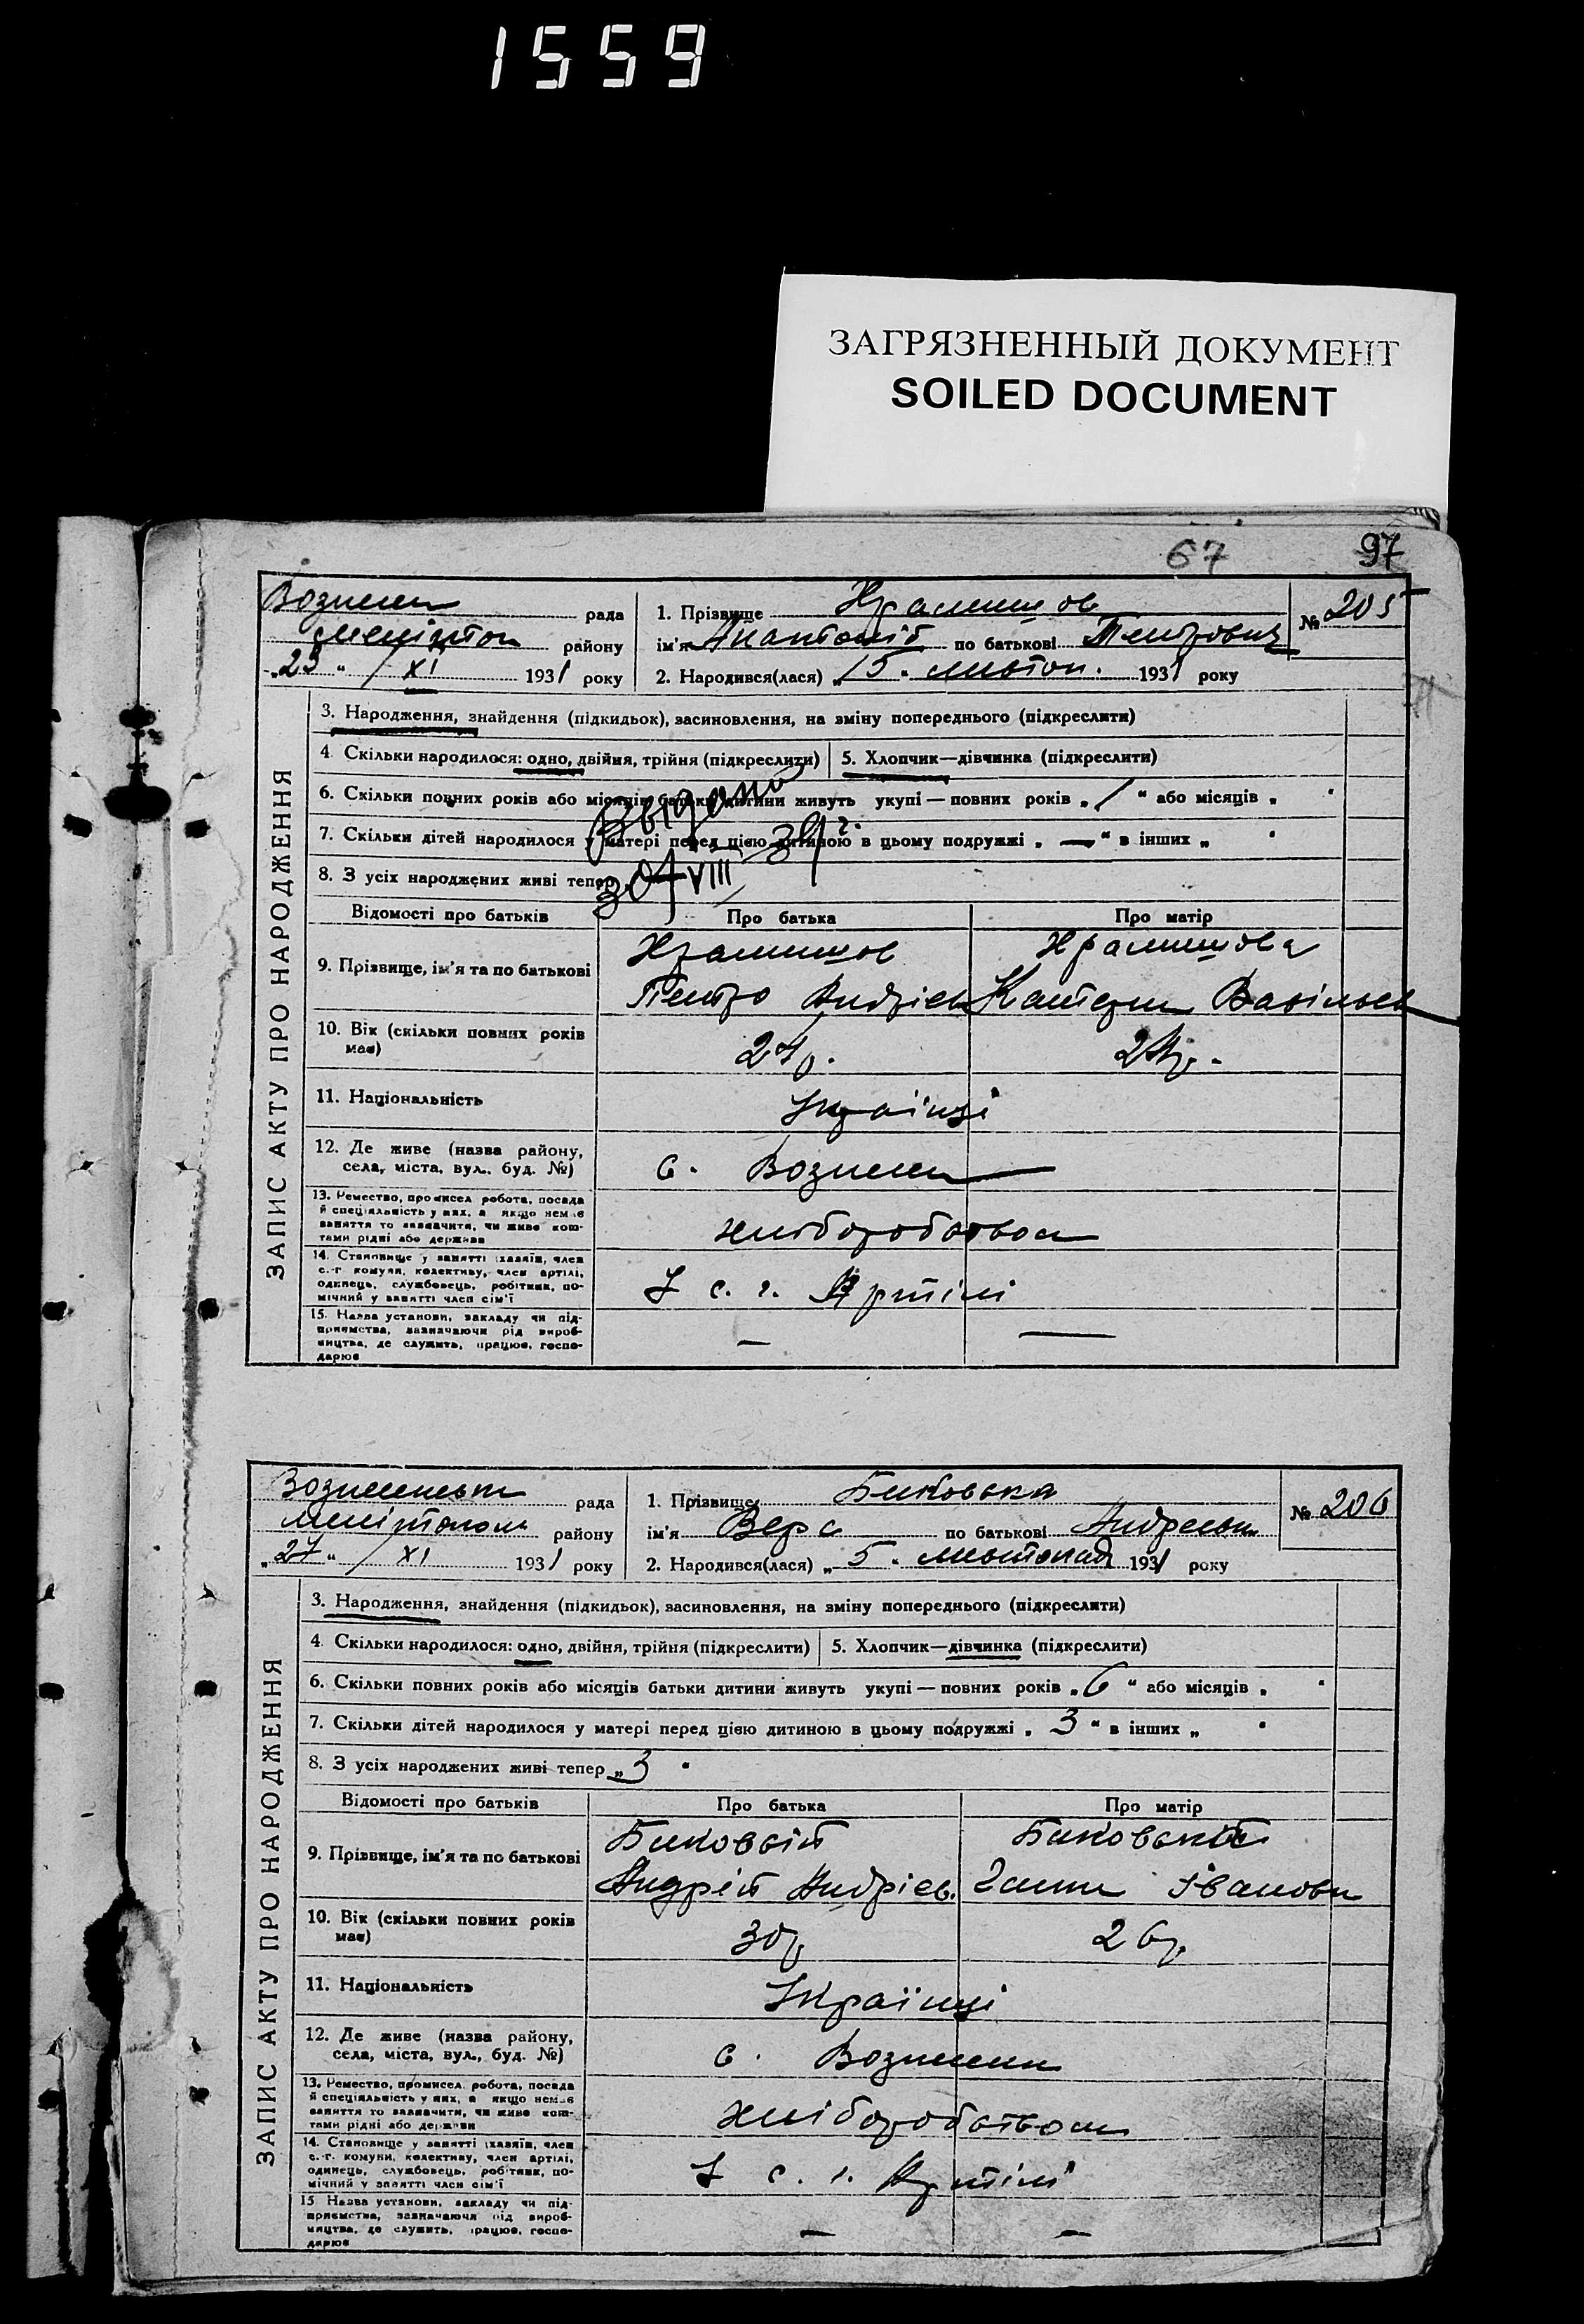 1559
ЗАГРЯЗНЕННЫЙ ДОКУМЕНТ
SOILED DOCUMENT
67 97
ЗАПИС АКТУ ПРО НАРОДЖЕННЯ
Вознесен рада
Меліton району
"23" / XI 1931 року
1. Прізвище
№ 205
ім'я Анатоній по батькові Петрович
2. Народився(лася) "15" листоп. 1931 року
3. Народження, знайдення (підкидьок), засиновлення, на зміну попереднього (підкреслити)
4. Скільки народилося: одно, двійня, трійня (підкреслити) 5. Хлопчик—дівчинка (підкреслити)
6. Скільки повних років або місяців батьки дитини живуть укупі — повних років "1" або місяців "
7. Скільки дітей народилося у матері перед цією дитиною в цьому подружжі "—" в інших "
8. З усіх народжених живі тепер
Відомості про батьків Про батька Про матір
9. Прізвище, ім'я та по батькові
Петро Андрієв Катерин Васільев
10. Вік (скільки повних років має) 24 р. 24 р.
11. Національність Українці
12. Де живе (назва району, села, міста, вул., буд. №) с. Вознесен
13. Ремество, промисел робота, посада й спеціяльність у них, а якщо немає заняття то зазначити, чи живе коштами рідні або держави хліборобством
14. Становище у занятті (хазяїн, член с.-г комуни, колективу, член артілі, одинець, службовець, робітник, помічний у занятті член сім'ї У с. г. Артілі
15. Назва установи, закладу чи підприємства, зазначаючи рід виробництва, де служить, працює, господарює — —
ЗАПИС АКТУ ПРО НАРОДЖЕННЯ
Вознесенськ рада
району
"27" / XI 1931 року
1. Прізвище Биковська
№ 206
ім'я Вера по батькові Андреевн
2. Народився(лася) "5" листопад 1931 року
3. Народження, знайдення (підкидьок), засиновлення, на зміну попереднього (підкреслити)
4. Скільки народилося: одно, двійня, трійня (підкреслити) 5. Хлопчик—дівчинка (підкреслити)
6. Скільки повних років або місяців батьки дитини живуть укупі — повних років "6" або місяців "
7. Скільки дітей народилося у матері перед цією дитиною в цьому подружжі "3" в інших "
8. З усіх народжених живі тепер "3"
Відомості про батьків Про батька Про матір
9. Прізвище, ім'я та по батькові Биковський Биковська
Андрій Андрієв. Ганна Івановн
10. Вік (скільки повних років має) 30 р. 26 р.
11. Національність Українці
12. Де живе (назва району, села, міста, вул., буд. №) с. Вознесен
13. Ремество, промисел робота, посада й спеціяльність у них, а якщо немає заняття то зазначити, чи живе коштами рідні або держави хліборобством
14. Становище у занятті (хазяїн, член с.-г. комуни, колективу, член артілі, одинець, службовець, робітник, помічний у занятті член сім'ї У с. г. Артілі
15 Назва установи, закладу чи підприємства, зазначаючи рід виробництва, де служить, працює, господарює — —